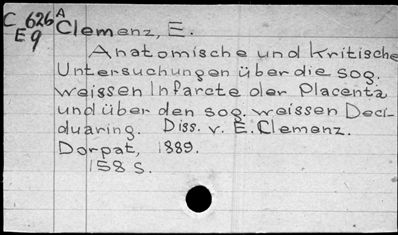 C 626 A
E9
Clemenz, E.
Anatomische und Kritische
Untersuchungen über die sog.
weissen Infarcte der Placenta
und über den sog. weissen Deci-
duaring. Diss. v. E. Clemenz.
Dorpat, 1889.
158 S.